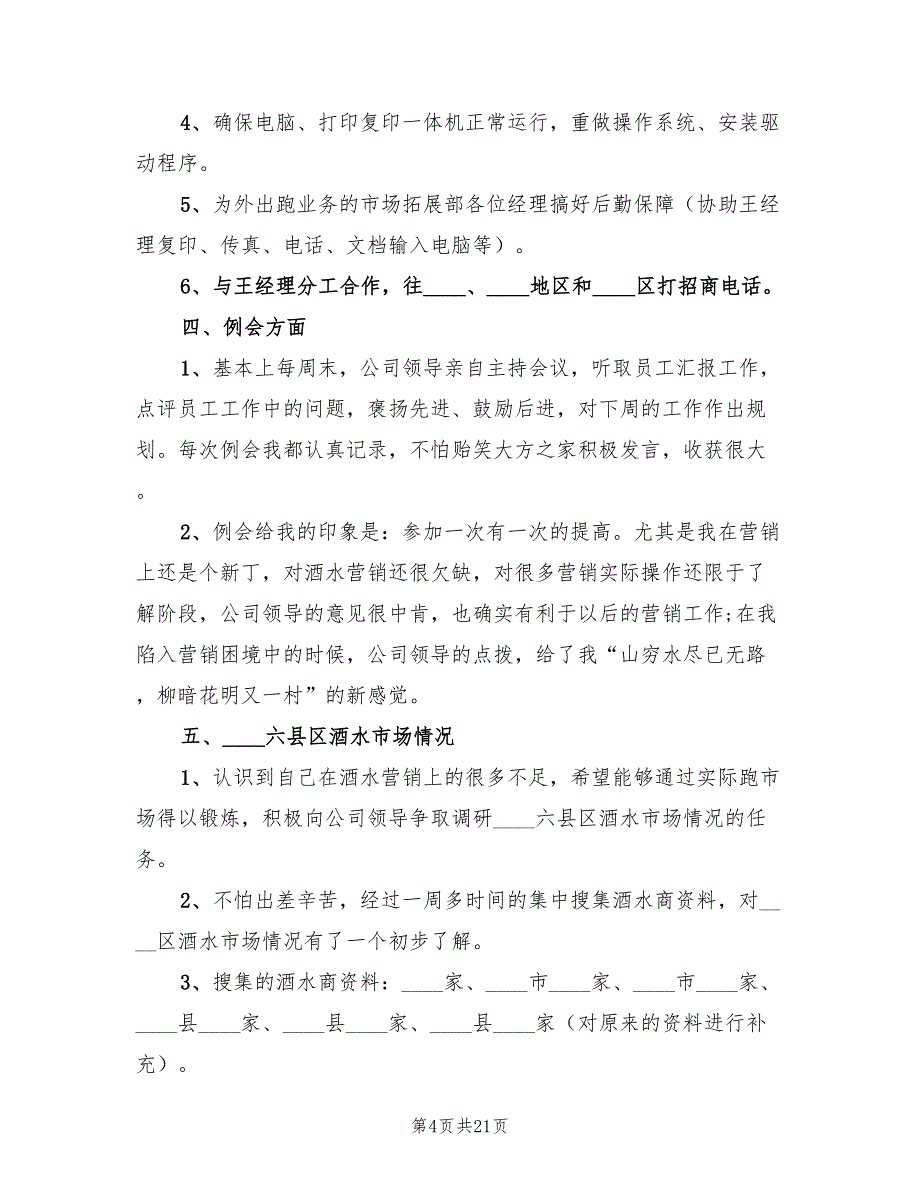 4、确保电脑、打印复印一体机正常运行，重做操作系统、安装驱
动程序。
5、为外出跑业务的市场拓展部各位经理搞好后勤保障（协助王经
理复印、传真、电话、文档输入电脑等）。
6、与王经理分工合作，往____、____地区和____区打招商电话。
四、例会方面
1、基本上每周末，公司领导亲自主持会议，听取员工汇报工作，
点评员工工作中的问题，褒扬先进、鼓励后进，对下周的工作作出规
划。每次例会我都认真记录，不怕贻笑大方之家积极发言，收获很大
。
2、例会给我的印象是：参加一次有一次的提高。尤其是我在营销
上还是个新丁，对酒水营销还很欠缺，对很多营销实际操作还限于了
解阶段，公司领导的意见很中肯，也确实有利于以后的营销工作;在我
陷入营销困境中的时候，公司领导的点拨，给了我“山穷水尽已无路
，柳暗花明又一村”的新感觉。
五、____六县区酒水市场情况
1、认识到自己在酒水营销上的很多不足，希望能够通过实际跑市
场得以锻炼，积极向公司领导争取调研____六县区酒水市场情况的任
务。
2、不怕出差辛苦，经过一周多时间的集中搜集酒水商资料，对__
__区酒水市场情况有了一个初步了解。
3、搜集的酒水商资料：____家、____市____家、____市____家、
____县____家、____县____家、____县____家（对原来的资料进行补
充）。
第4页共21页